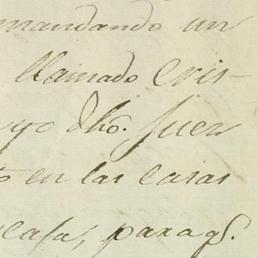 mandando un
llamado Cris-
uyo dho. Juez
en las casas
casa, para q̃.